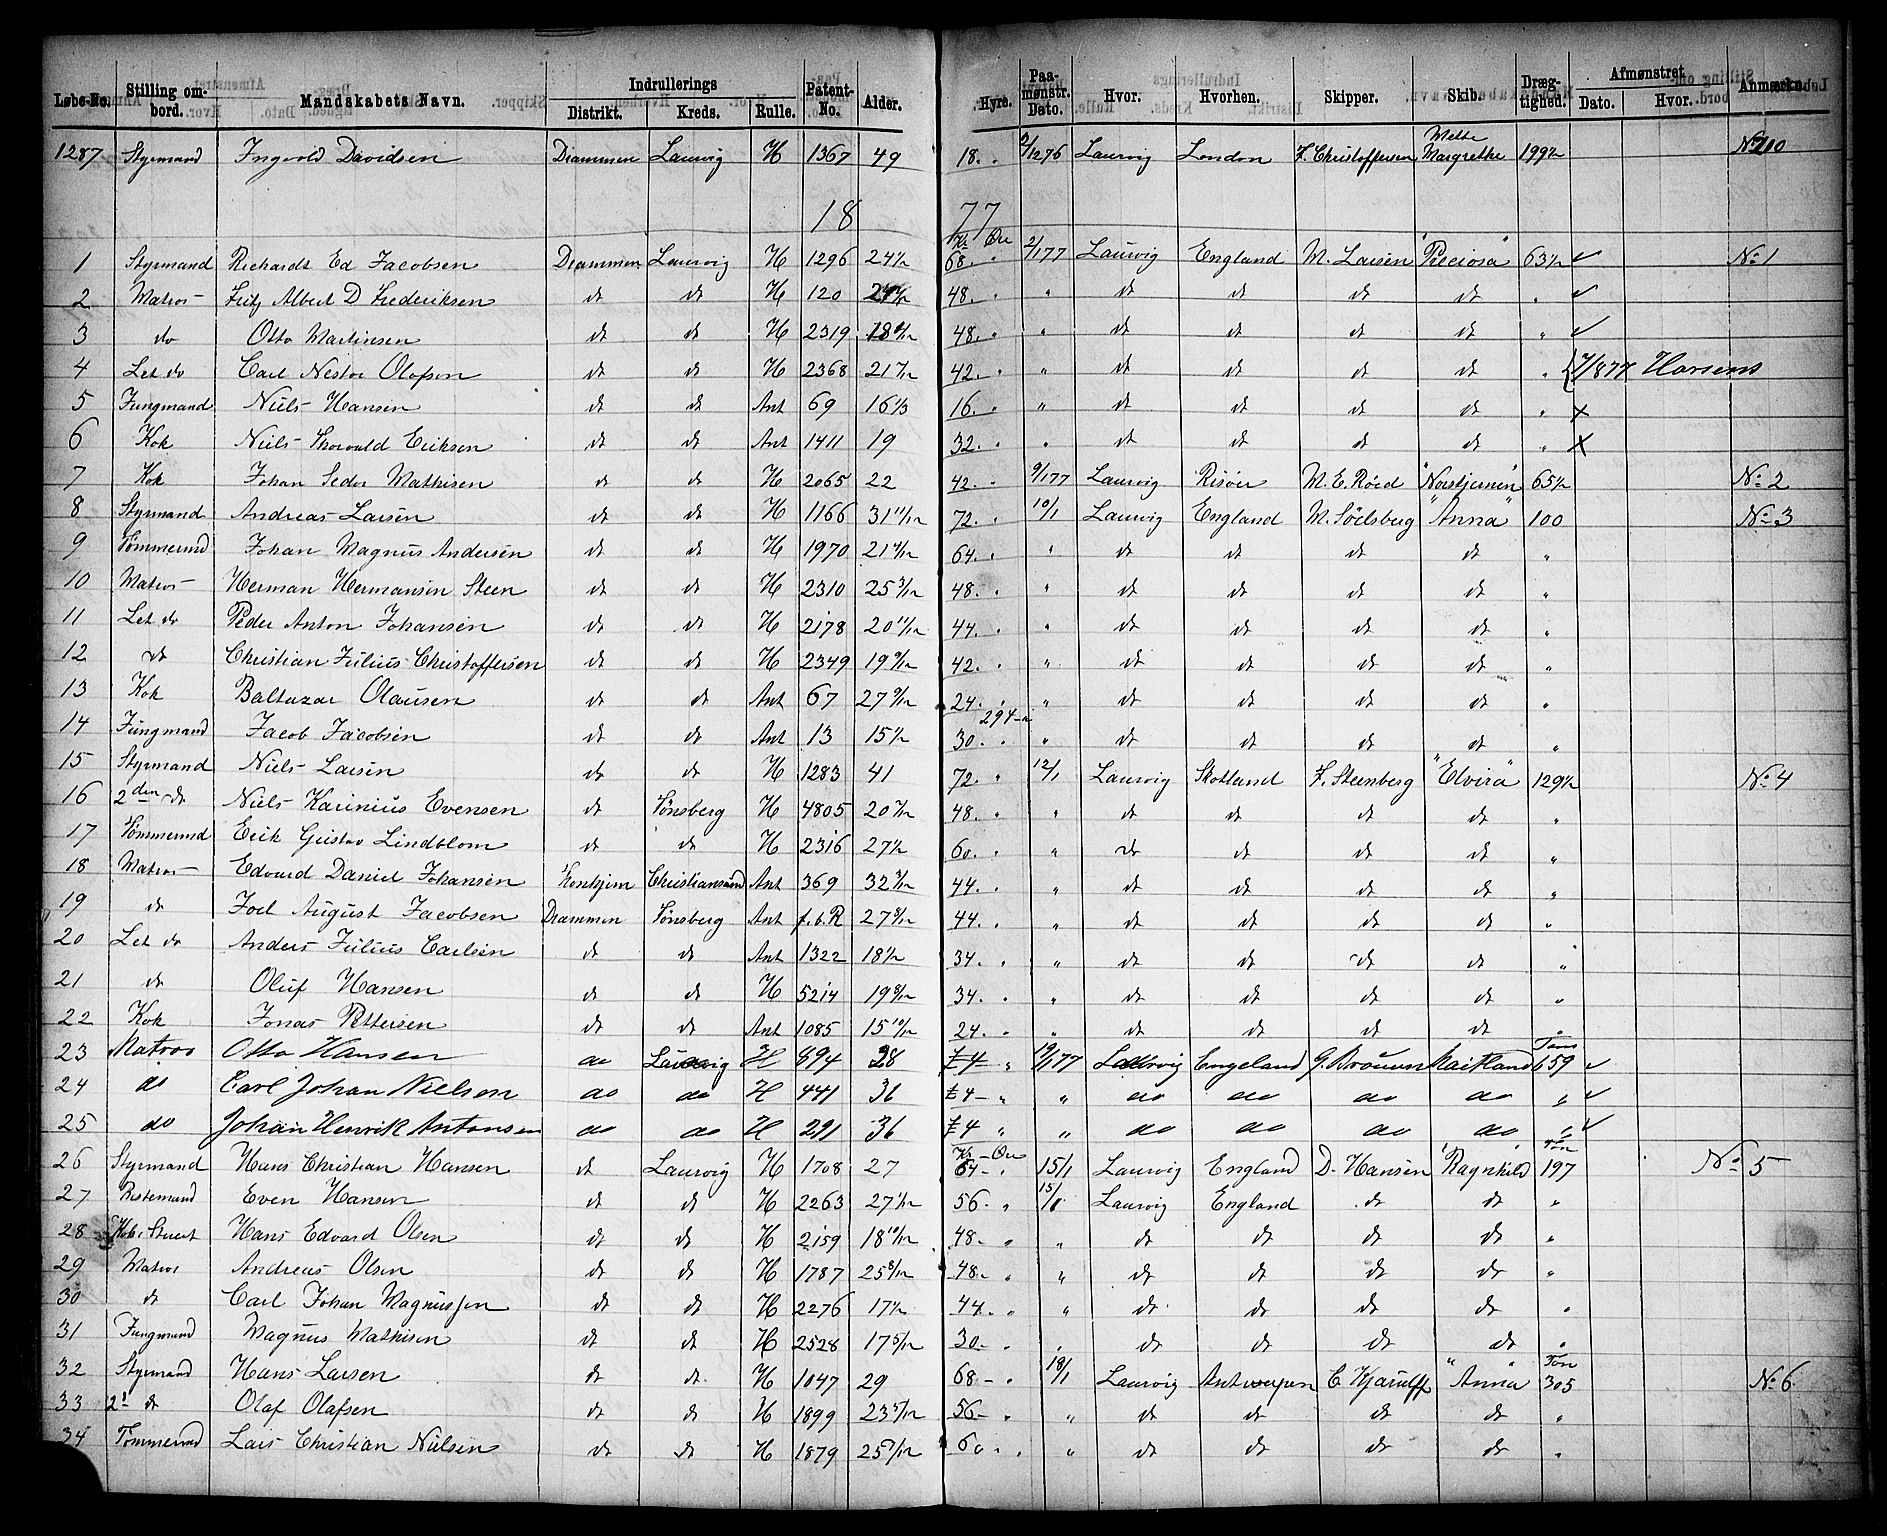 Løbe-No. Stilling ombord. Mandskabets Navn. Indrullerings Distrikt. Kreds. Rulle. Patent-No. Alder. Hyre. Paamønstr. Dato. Hvor. Hvorhen. Skipper. Skib. Drægtighed. Afmønstret Dato. Hvor. Anmærkn.
1287 Styrmand Ingvold Davidsen Drammen Laurvig H 1367 49 18. 2/1276 Laurvig London F. Christoffersen Mette Margrethe 199½ No 210
18 77
1 Styrmand Richardt Ed Jacobsen Drammen Laurvig H 1296 24½ Kr Øre 68 " 2/177 Laurvig England M. Larsen "Preciosa" 63½ ✓ No 1
2 Matros Fritz Albert D Frederiksen dt dt H 120 48. " " dt dt dt dt " ✓
3 do Otto Martinsen dt dt H 2319 48. " " dt dt dt dt " ✓
4 Let do Carl Nestor Olafsen dt dt H 2368 21 7/12 42. " " dt dt dt dt " 7/877 Horsens
5 Jungmand Niels Hansen dt dt Ant 69 16 1/3 16. " " dt dt dt dt " x
6 Kok Niels Thorvald Eriksen dt dt Ant 1411 19 32. " " dt dt dt dt " x
7 Kok Johan Sedor Mathisen dt dt H 2065 22 42. " 9/177 Laurvig Risöer M. E. Röed "Nordstjernen" 65½ No 2
8 Styrmand Andreas Larsen dt dt H 1166 31 11/12 72. " 10/1 Laurvig England M. Söelsberg "Anna" 100 No 3
9 Tömmermd Johan Magnus Andersen dt dt H 1970 21 4/12 64. " " dt dt dt dt "
10 Matros Herman Hermansen Steen dt dt H 2310 25 3/12 48. " " dt dt dt dt "
11 Let do Peder Anton Johansen dt dt H 2178 20 11/12 44. " " dt dt dt dt "
12 dt Christian Julius Christoffersen dt dt H 2349 19 9/12 42. " " dt dt dt dt "
13 Kok Baltazar Olausen dt dt Ant 67 27 9/12 24. " " dt dt dt dt "
294
14 Jungmand Jacob Jacobsen dt dt Ant 13 15½ 30. " " dt dt dt dt "
15 Styrmand Niels Larsen do dt H 1283 41 72. " 12/1 Laurvig Skotland F. Steenberg "Elvira" 129½ No 4
16 2den dt Niels Karinius Evensen dt Tønsberg H 4805 20 7/12 48. " " dt dt dt dt "
17 Tömmermd Erik Gustav Lindblom dt dt H 2316 27½ 60. " " dt dt dt dt "
18 Matros Edvard Daniel Johansen Tronhjem Christiansund Ant 369 32 3/12 44. " " dt dt dt dt "
19 dt Joel August Jacobsen Drammen Tønsberg Ant f.b.R 27 8/12 44. " " dt dt dt dt "
20 Let do Anders Julius Carlsen dt dt Ant 1322 18½ 34. " " dt dt dt dt "
21 dt Oluf Hansen dt dt H 5214 19 8/12 34. " " dt dt dt dt "
22 Kok Jonas Pettersen dt dt Ant 1085 15 10/12 24. " " dt dt dt dt "
23 Matros Otto Hansen do Laurvig H 894 28 £4 " 19/177 Laurvig Engeland G. Brouwn Maitland Tons 659 ✓
24 do Carl Johan Nielsen do do H 441 36 £4 " " do do do do " ✓
25 do Johan Henrik Antonsen do do H 291 36 £4 " " do do do do " ✓
26 Styrmand Hans Christian Hansen dt Laurvig H 1708 27 Kr Øre 64 " 15/1 Laurvig England D. Hansen "Ragnhild" Ton 197 No 5
27 Bestemand Even Hansen dt dt H 2263 27 1/12 56. " 15/1 Laurvig England dt dt "
28 Kok & Stuert Hans Edvard Olsen dt dt H 2159 18 10/12 48. " " dt dt dt dt "
29 Matros Andreas Olsen dt dt H 1787 25 8/12 48. " " dt dt dt dt "
30 dt Carl Johan Magnussen dt dt H 2276 17½ 44. " " dt dt dt dt "
31 Jungmand Magnus Mathisen dt dt H 2528 17 5/12 30. " dt dt dt dt "
32 Styrmand Hans Larsen dt dt H 1047 29 68 " 18/1 Laurvig Antwerpen C Kjerulff "Anna" Ton 305 No 6.
33 2d dt Olaf Olafsen dt dt H 1899 23 5/12 56 " " dt dt dt dt "
34 Tömmermd Lars Christian Nielsen dt dt H 1879 25 7/12 60. " " dt dt dt dt "